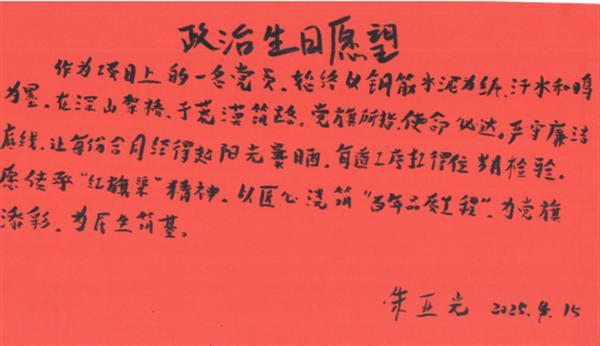 政治生日愿望
作为项目上的一名党员,始终以钢筋水泥为纸,汗水和鸣
为墨。在深山架桥,于荒漠筑路,党旗所指,使命必达。严守廉洁
底线,让每份合同经得起阳光暴晒,每道工序扛得住岁月检验。
愿传承“红旗渠”精神,以匠心浇筑“百年品质工程”,为党旗
添彩,为民生筑基。
朱亚光 2025.4.15